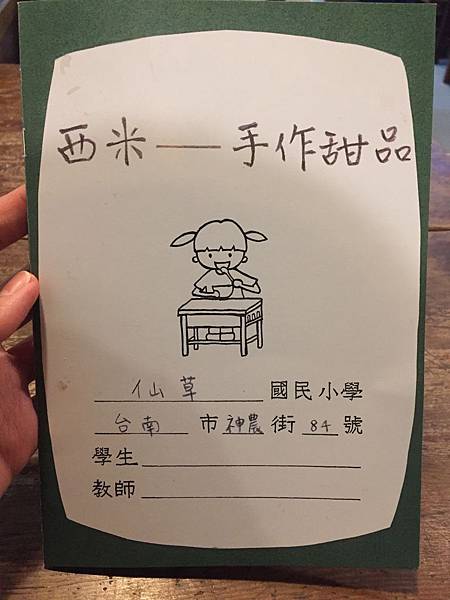 西米——手作甜品
仙草 國民小學
台南 市 神農 街 84 號
學生
教師